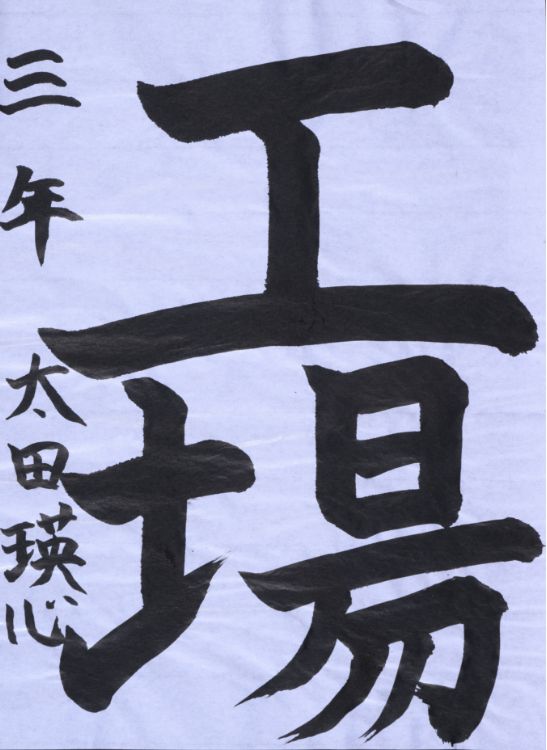 工場
三年 太田瑛心